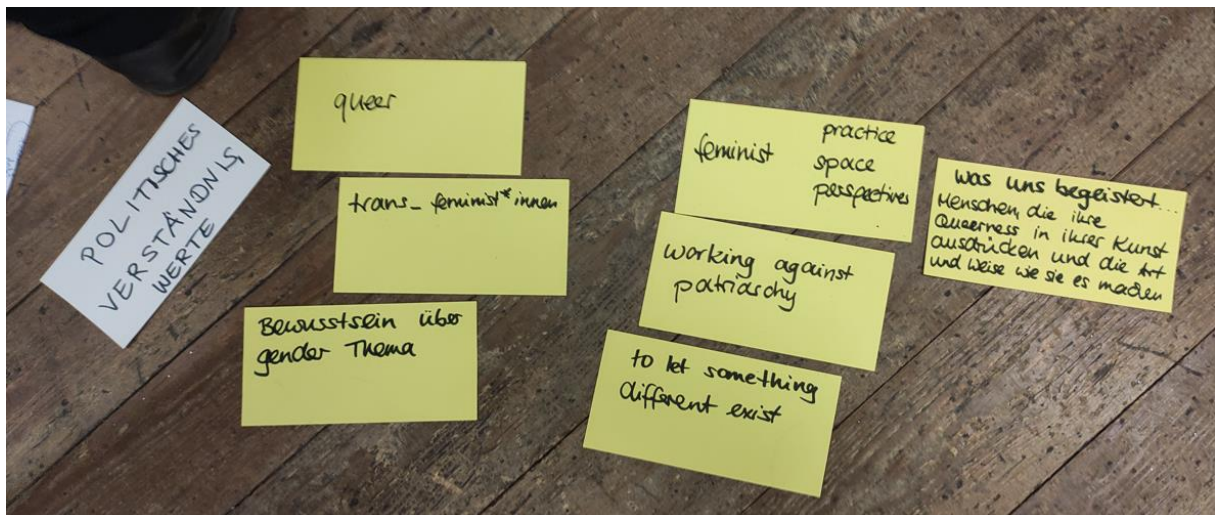 POLITISCHES
VERSTÄNDNIS,
WERTE
queer
trans_feminist*innen
Bewusstsein über
gender Thema
feminist practice
space
perspectives
working against
patriarchy
to let something
different exist
was uns begeistert...
Menschen, die ihre
Queerness in ihrer Kunst
ausdrücken und die Art
und Weise wie sie es machen